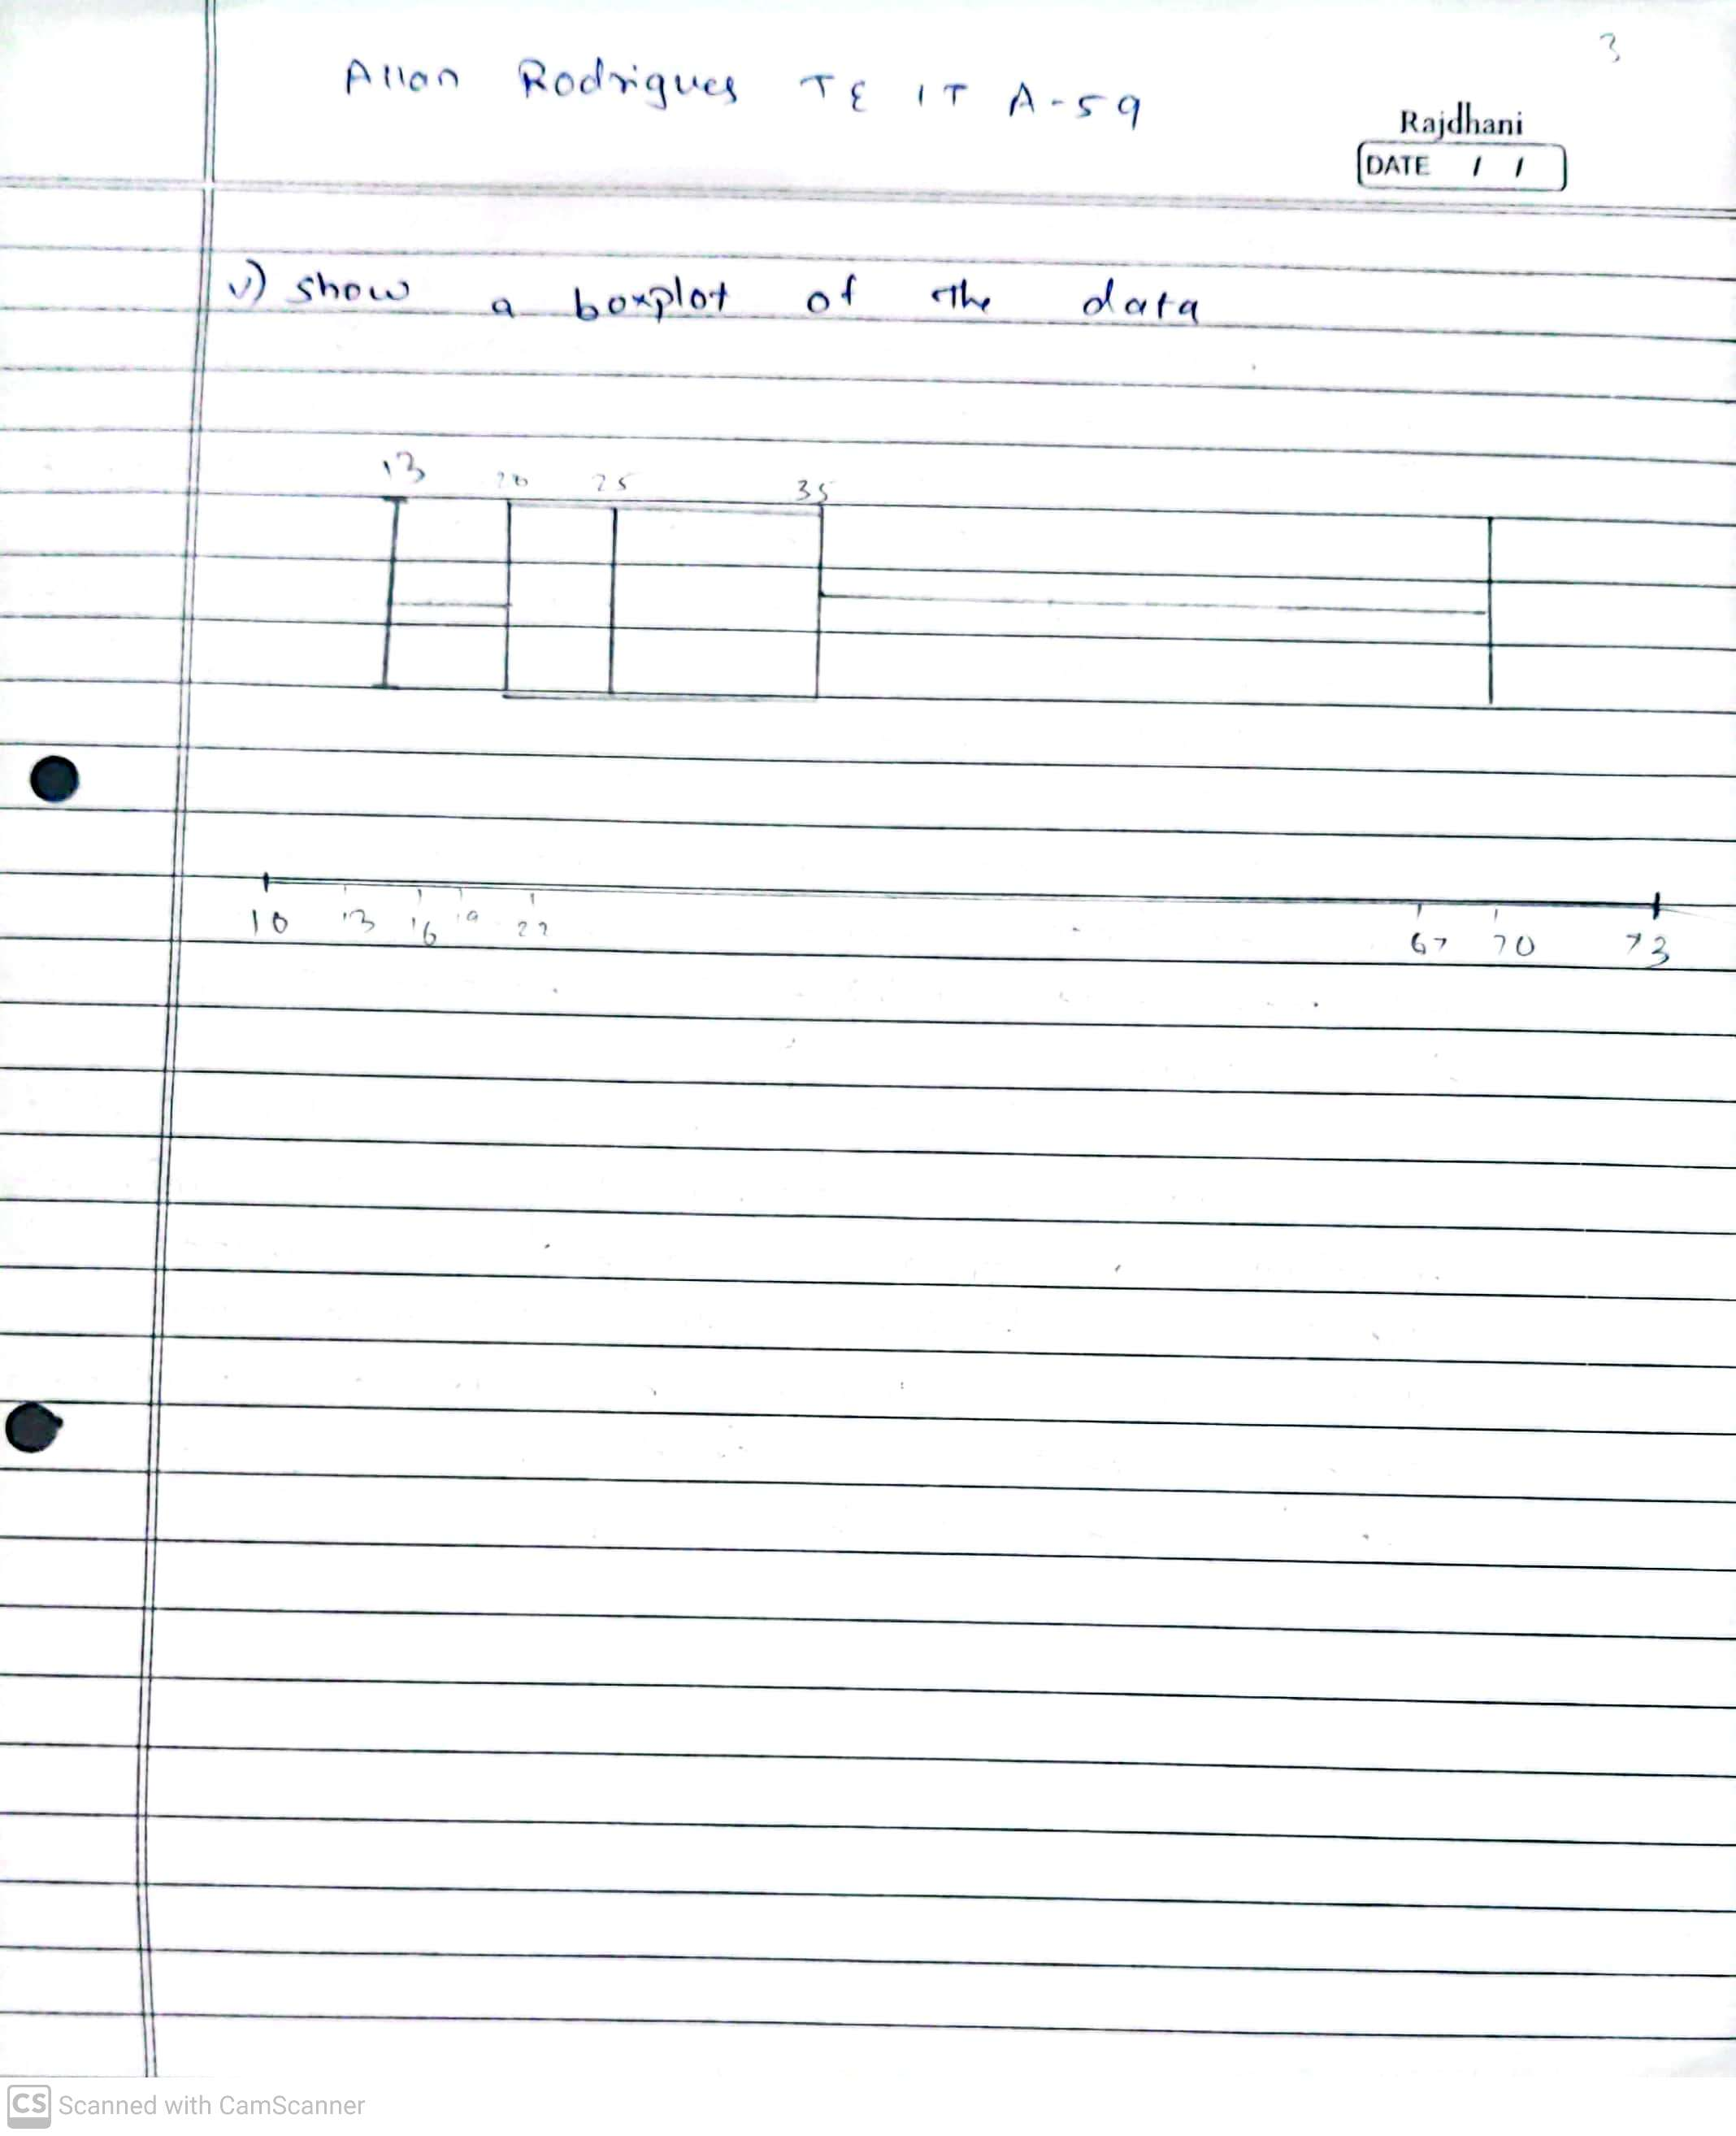 3
Allan Rodrigues TE IT A-59
Rajdhani
DATE / /
v) show a boxplot of the data
13 20 25 35
10 13 16 19 22 67 70 73
CS Scanned with CamScanner